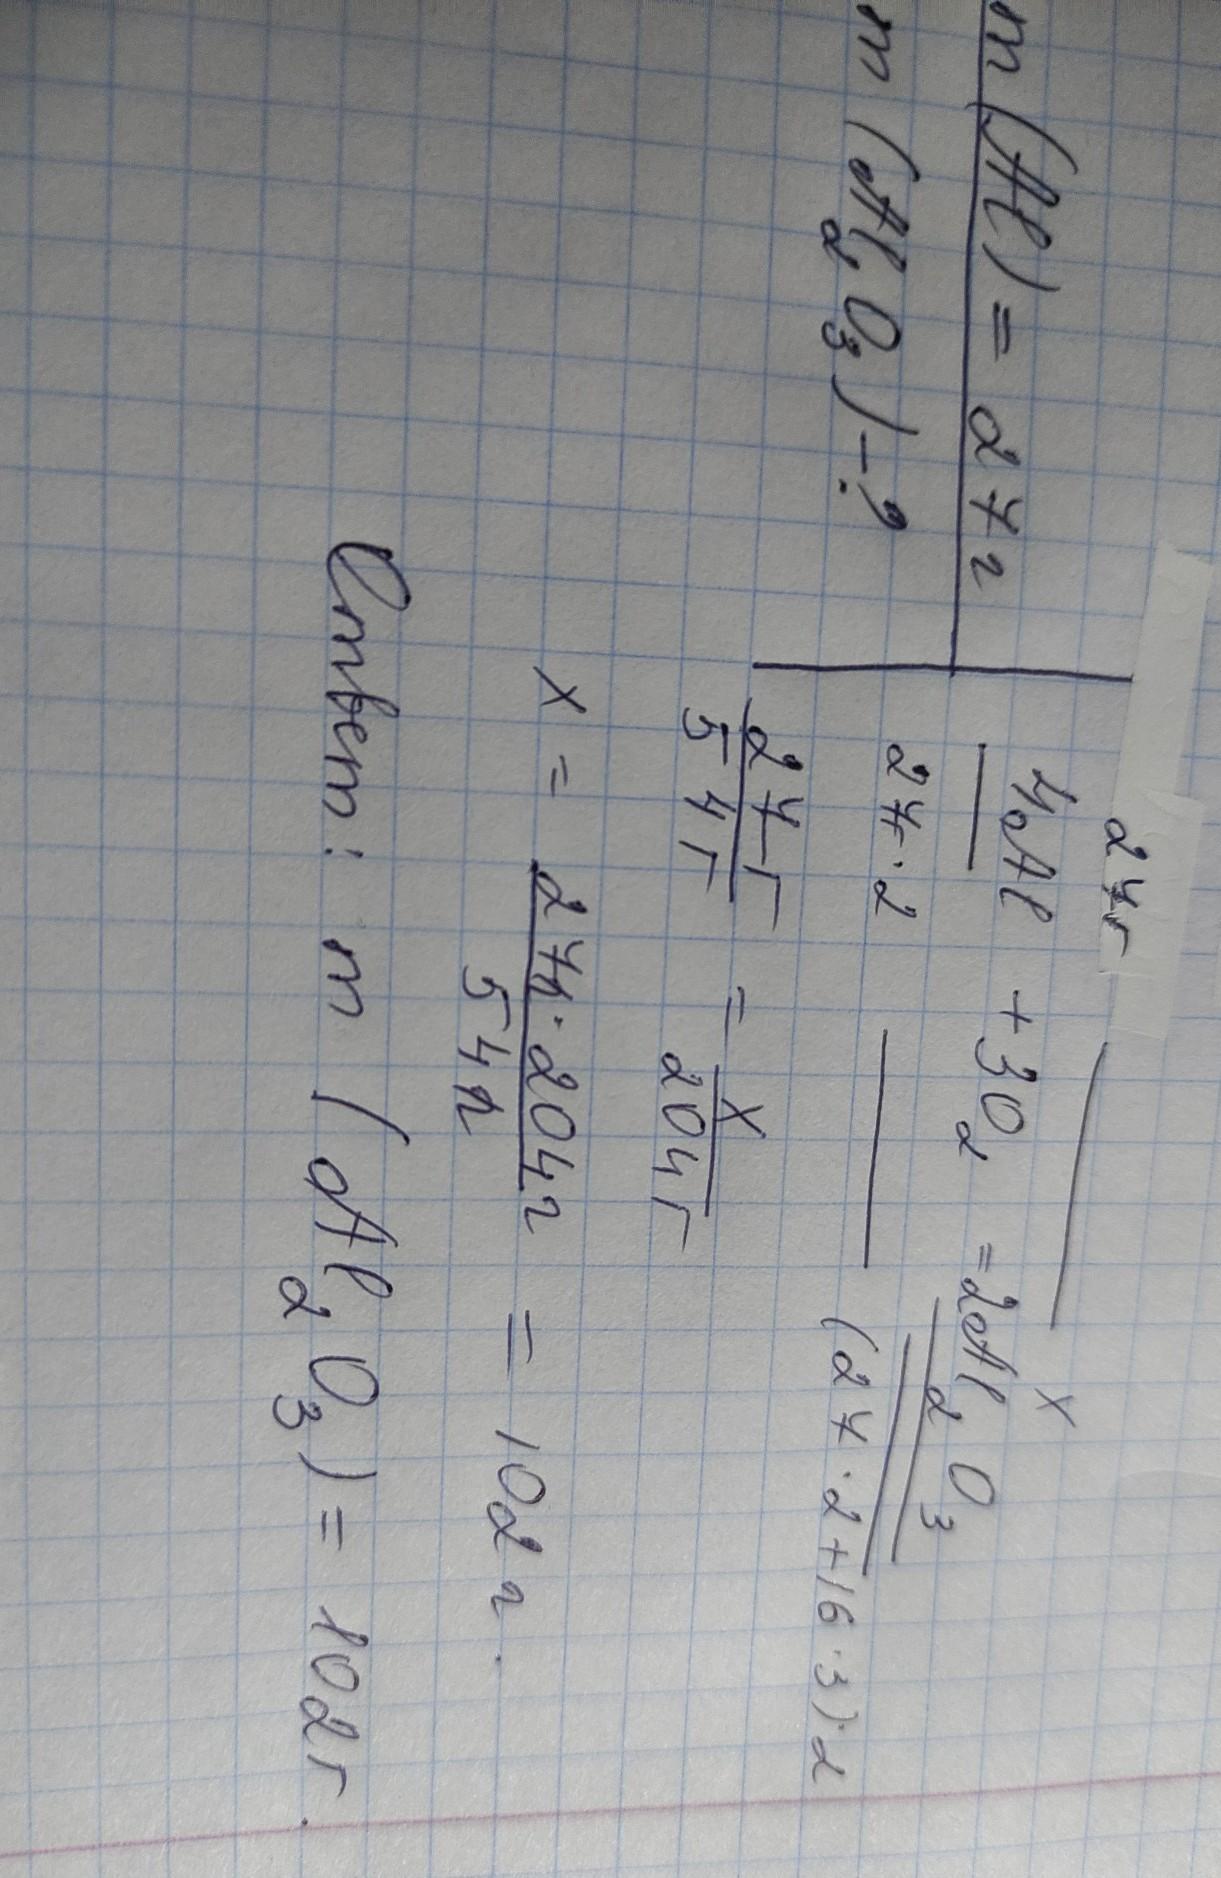 m(Al) = 27г
m(Al2O3) - ?
27г x
4Al + 3O2 = 2Al2O3
27·2 (27·2+16·3)·2
27г / 54г = x / 204г
x = 27г·204г / 54г = 102г.
Ответ: m(Al2O3) = 102г.